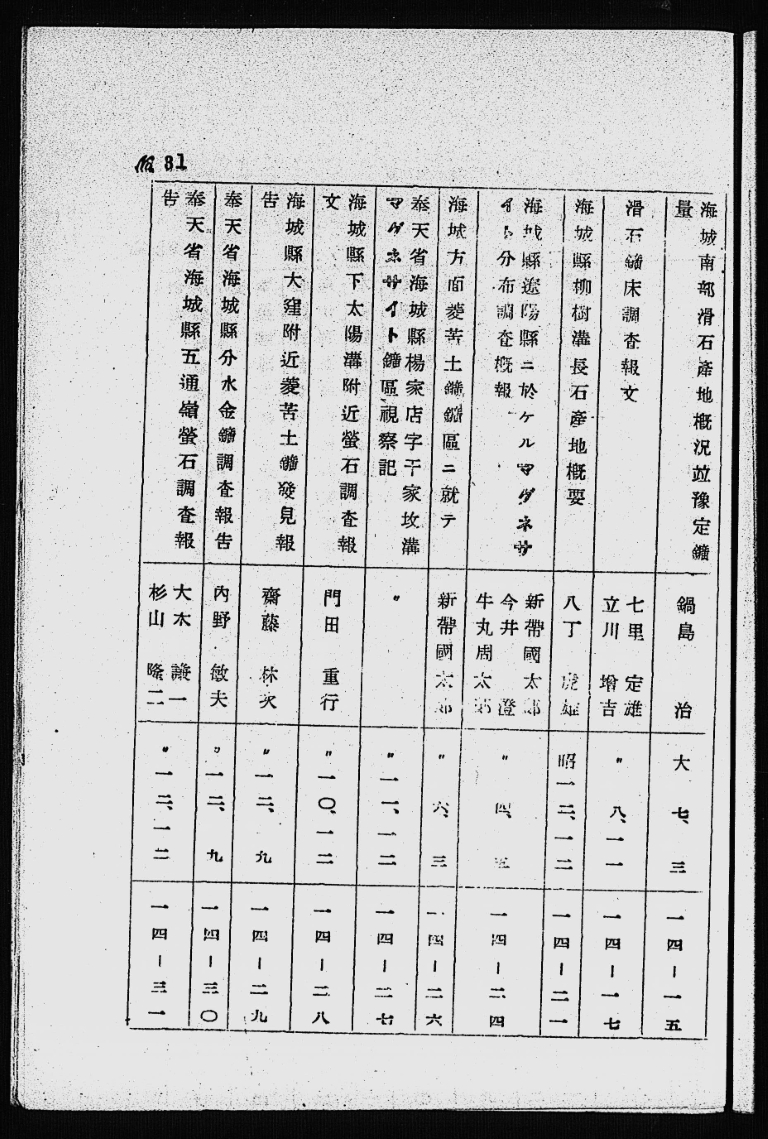 81
海城南部滑石產地概況竝豫定鑛
量
鍋島 治
大 七、三
一四ー一五
滑石鑛床調査報文
七里 定雄
立川 增吉
〃 八、一一
一四ー一七
海城縣柳樹溝長石產地概要
八丁 虎雄
昭一二、一二
一四ー二一
海城縣遼陽縣ニ於ケルマグネサ
イト分布調査槪報
新帶國太郎
今井 澄
牛丸周太郎
〃 四、三
一四ー二四
海城方面菱苦土鑛鑛區ニ就テ
新帶國太郎
〃 六、三
一四ー二六
奉天省海城縣楊家店字干家坟溝
マグネサイト鑛區視察記
〃
〃一一、一二
一四ー二七
海城縣下太陽溝附近螢石調査報
文
門田 重行
〃一〇、一二
一四ー二八
海城縣大窪附近菱苦土鑛發見報
告
齋藤 林次
〃一二、九
一四ー二九
奉天省海城縣分水金鑛調査報告
內野 敏夫
〃一二、九
一四ー三〇
奉天省海城縣五通嶺螢石調査報
告
大木 謙一
杉山 隆二
〃一二、一二
一四ー三一